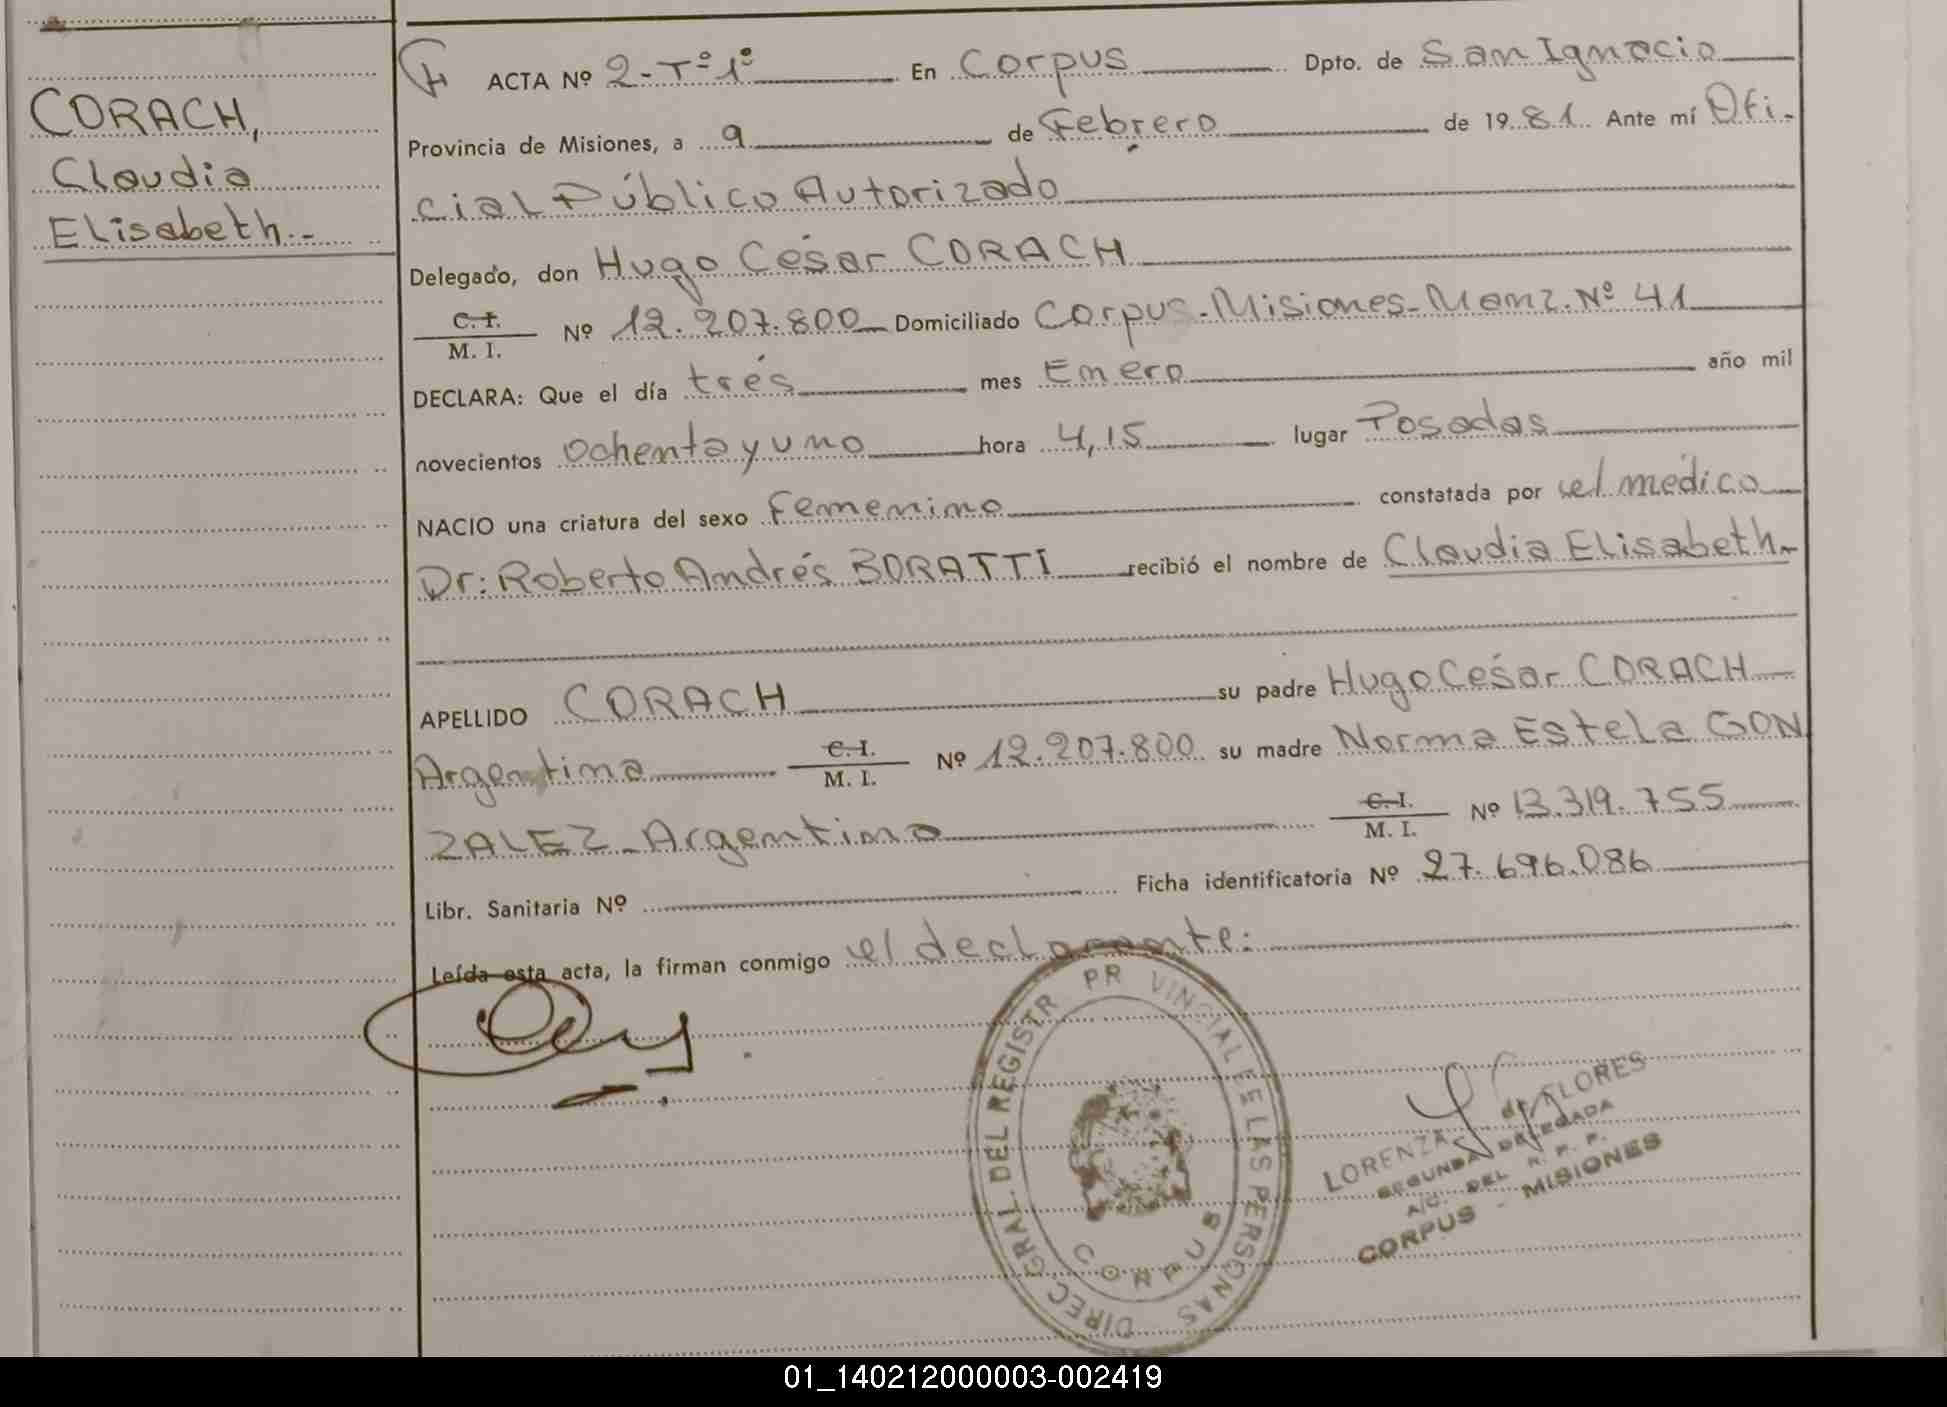 CORACH,
Claudia
Elisabeth.-
ACTA Nº 2-Tº1º En Corpus Dpto. de San Ignacio
Provincia de Misiones, a 9 de Febrero de 1981. Ante mí Ofi-
cial Público Autorizado
Delegado, don Hugo César CORACH
C. I. / M. I. Nº 12.207.800 Domiciliado Corpus-Misiones-Manz. Nº 41
DECLARA: Que el día trés mes Enero año mil
novecientos ochenta y uno hora 4,15 lugar Posadas
NACIO una criatura del sexo femenino constatada por el médico
Dr: Roberto Andrés BORATTI recibió el nombre de Claudia Elisabeth-
APELLIDO CORACH su padre Hugo César CORACH
Argentina C. I. / M. I. Nº 12.207.800 su madre Norma Estela GON
ZALEZ-Argentina C. I. / M. I. Nº 13.319.755
Libr. Sanitaria Nº Ficha identificatoria Nº 27.696.086
Leída esta acta, la firman conmigo el declarante:
DIREC GRAL DEL REGISTR PR VINCIAL E LAS PERSONAS
CORPUS
LORENZA de FLORES
SEGUNDA DELEGADA
A/C. DEL R. P. P.
CORPUS - MISIONES
01_140212000003-002419